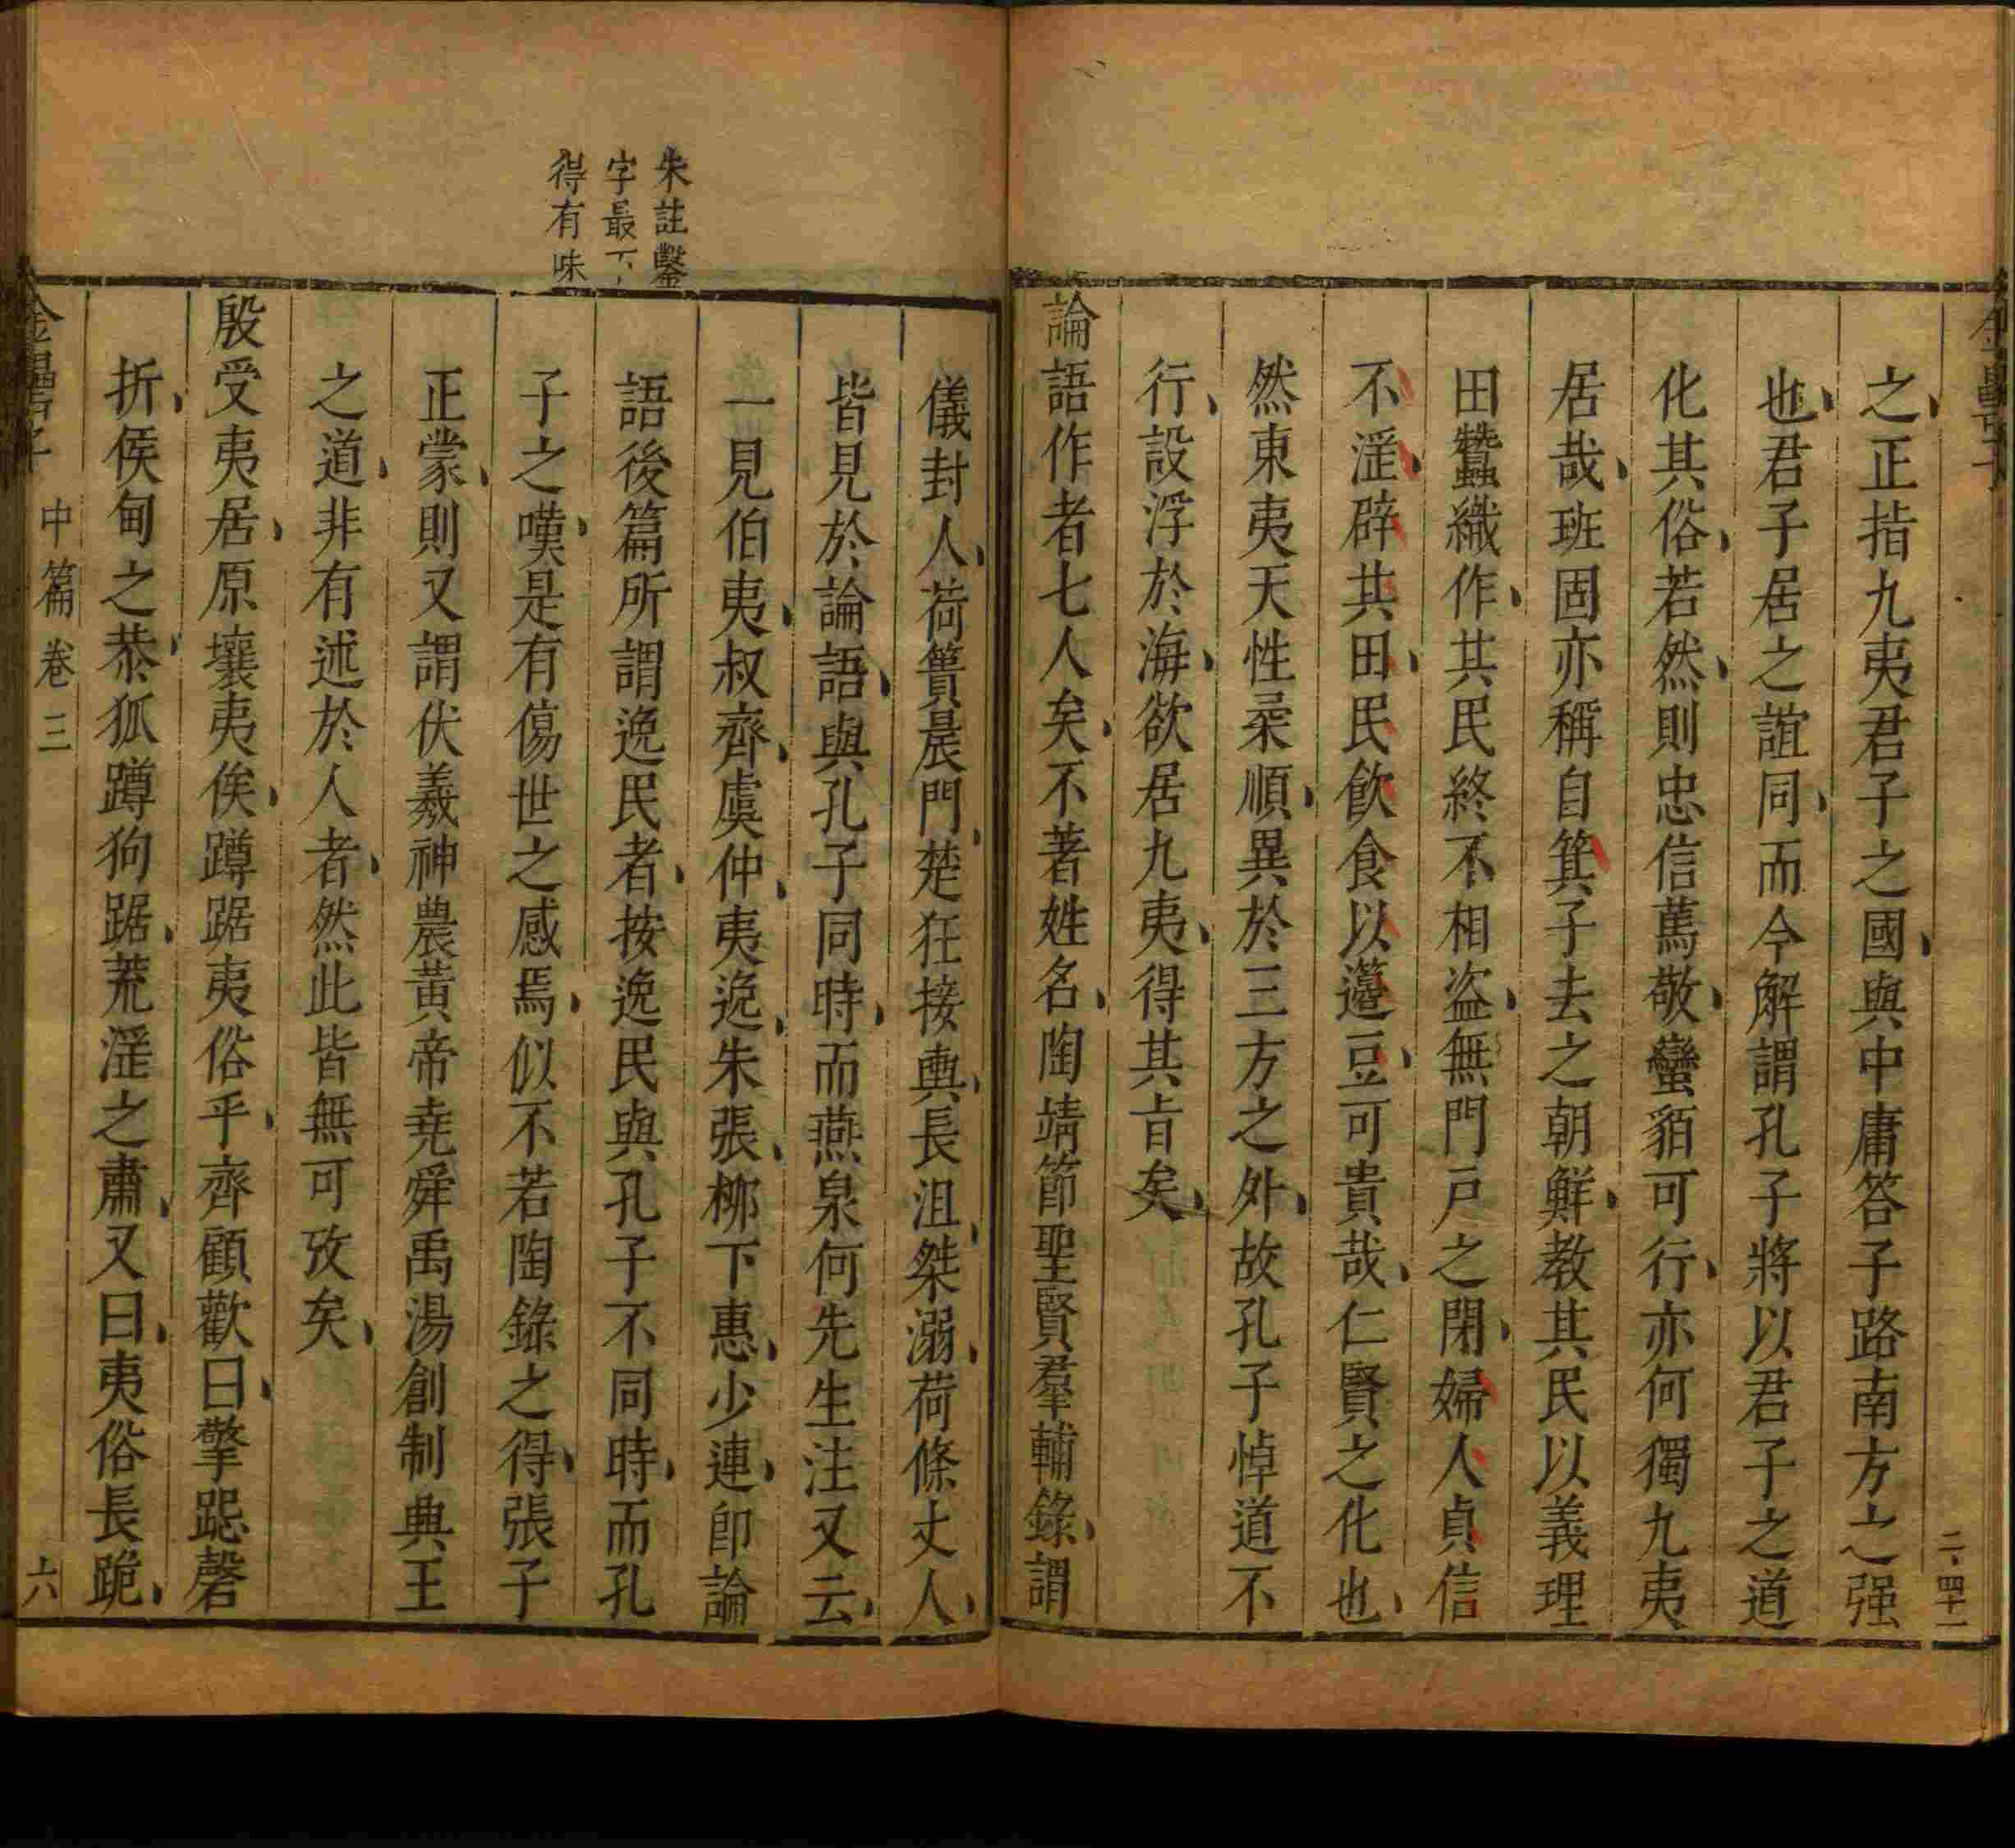 金罍子
二四十一
之正指九夷君子之國與中庸答子路南方之强
也君子居之誼同而今解謂孔子將以君子之道
化其俗若然則忠信篤敬蠻貊可行亦何獨九夷
居哉班固亦稱自箕子去之朝鮮教其民以義理
田蠶織作其民終不相盗無門戸之閉婦人貞信
不滛辟其田民飲食以籩豆可貴哉仁賢之化也
然東夷天性柔順異於三方之外故孔子悼道不
行設浮於海欲居九夷得其㫖矣
論語作者七人矣不著姓名陶靖節聖賢羣輔錄謂
朱註鑿
字最下
得有味
儀封人荷簣晨門楚狂接輿長沮桀溺荷篠丈人
皆見於論語與孔子同時而燕泉何先生注又云
一見伯夷叔齊虞仲夷逸朱張栁下惠少連卽論
語後篇所謂逸民者按逸民與孔子不同時而孔
子之嘆是有傷世之感焉似不若陶錄之得張子
正蒙則又謂伏羲神農黄帝堯舜禹湯創制典王
之道非有述於人者然此皆無可攷矣
殷受夷居原壤夷俟蹲踞夷俗乎齊顧歡曰擎跽磬
折侯甸之恭狐蹲狗踞荒滛之肅又曰夷俗長跪
金罍子
中篇卷三
六